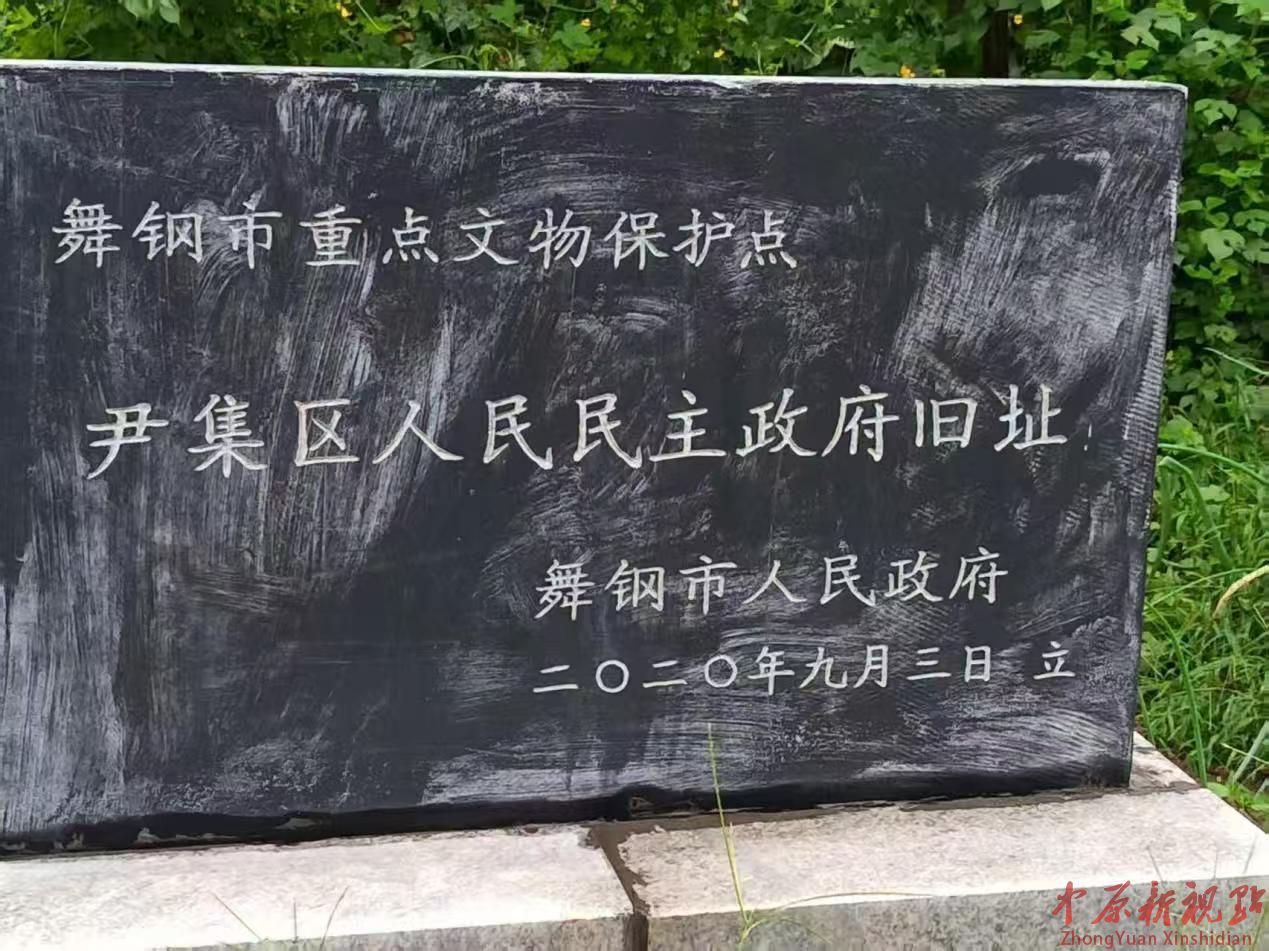 舞钢市重点文物保护点
尹集区人民民主政府旧址
舞钢市人民政府
二〇二〇年九月三日 立
中原新视点
ZhongYuan Xinshidian